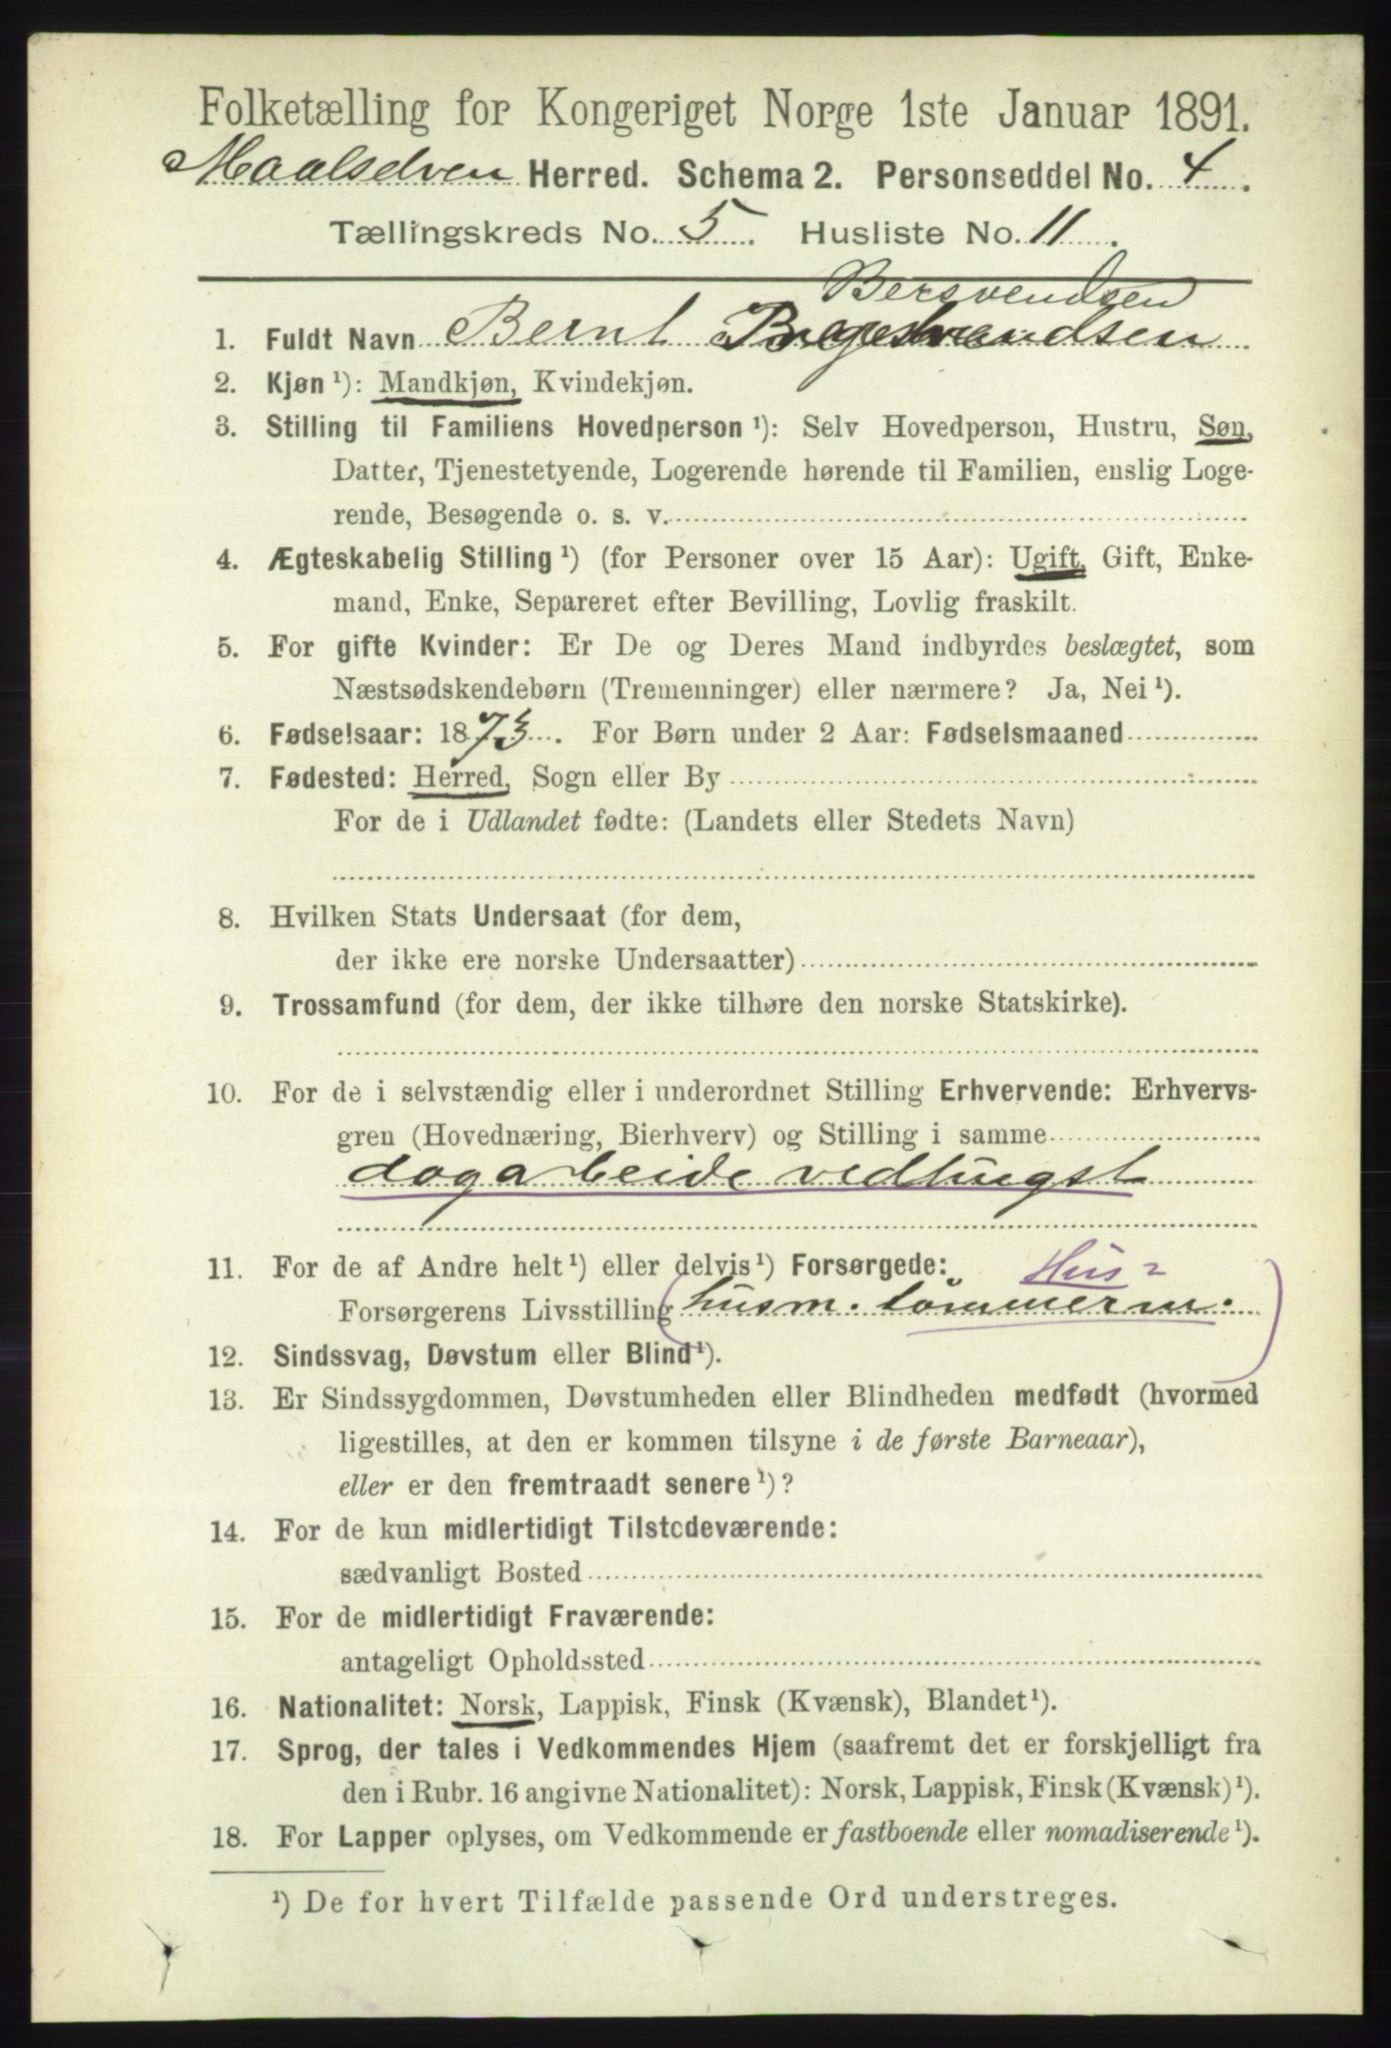 Folketælling for Kongeriget Norge 1ste Januar 1891.
Maalselven Herred. Schema 2. Personseddel No. 4.
Tællingskreds No. 5. Husliste No. 11.
Bersvendsen
1. Fuldt Navn Bernt
2. Kjøn ¹): Mandkjøn, Kvindekjøn.
3. Stilling til Familiens Hovedperson ¹): Selv Hovedperson, Hustru, Søn,
Datter, Tjenestetyende, Logerende hørende til Familien, enslig Loge-
rende, Besøgende o. s. v.
4. Ægteskabelig Stilling ¹) (for Personer over 15 Aar): Ugift, Gift, Enke-
mand, Enke, Separeret efter Bevilling, Lovlig fraskilt.
5. For gifte Kvinder: Er De og Deres Mand indbyrdes beslægtet, som
Næstsødskendebørn (Tremenninger) eller nærmere? Ja, Nei ¹).
6. Fødselsaar: 1873. For Børn under 2 Aar: Fødselsmaaned
7. Fødested: Herred, Sogn eller By
For de i Udlandet fødte: (Landets eller Stedets Navn)
8. Hvilken Stats Undersaat (for dem,
der ikke ere norske Undersaatter)
9. Trossamfund (for dem, der ikke tilhøre den norske Statskirke).
10. For de i selvstændig eller i underordnet Stilling Erhvervende: Erhvervs-
gren (Hovednæring, Bierhverv) og Stilling i samme
dagarbeide vedhugst
11. For de af Andre helt ¹) eller delvis ¹) Forsørgede: Hus-
Forsørgerens Livsstilling (husm. tömmerm.)
12. Sindssvag, Døvstum eller Blind ¹).
13. Er Sindssygdommen, Døvstumheden eller Blindheden medfødt (hvormed
ligestilles, at den er kommen tilsyne i de første Barneaar),
eller er den fremtraadt senere ¹)?
14. For de kun midlertidigt Tilstedeværende:
sædvanligt Bosted
15. For de midlertidigt Fraværende:
antageligt Opholdssted
16. Nationalitet: Norsk, Lappisk, Finsk (Kvænsk), Blandet ¹).
17. Sprog, der tales i Vedkommendes Hjem (saafremt det er forskjelligt fra
den i Rubr. 16 angivne Nationalitet): Norsk, Lappisk, Finsk (Kvænsk) ¹).
18. For Lapper oplyses, om Vedkommende er fastboende eller nomadiserende ¹).
¹) De for hvert Tilfælde passende Ord understreges.